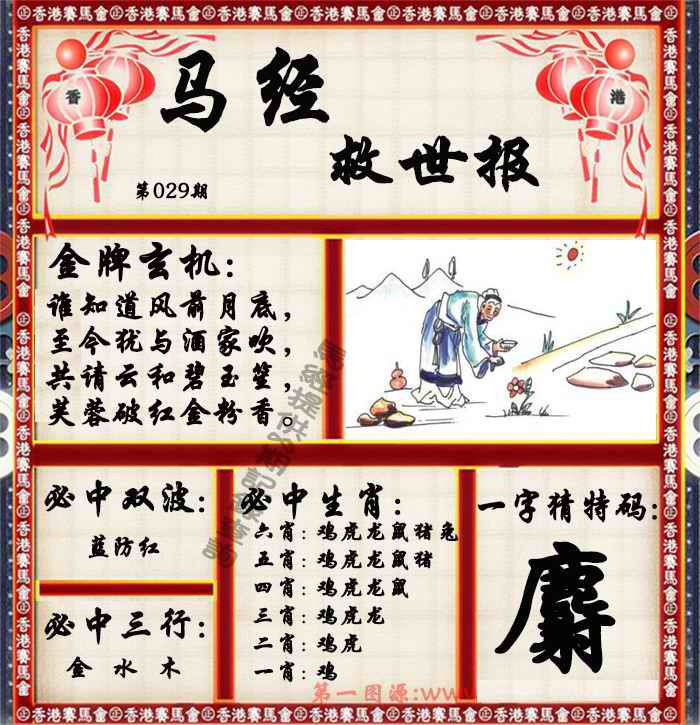 香港賽馬會
香
港
马经
救世报
第029期
金牌玄机：
谁知道风前月底，
至今犹与酒家吹，
共请云和碧玉笙，
芙蓉破红金粉香。
必中双波：
蓝防红
必中三行：
金 水 木
必中生肖：
六肖：鸡虎龙鼠猪兔
五肖：鸡虎龙鼠猪
四肖：鸡虎龙鼠
三肖：鸡虎龙
二肖：鸡虎
一肖：鸡
一字猜特码：
麝
第一图源：www